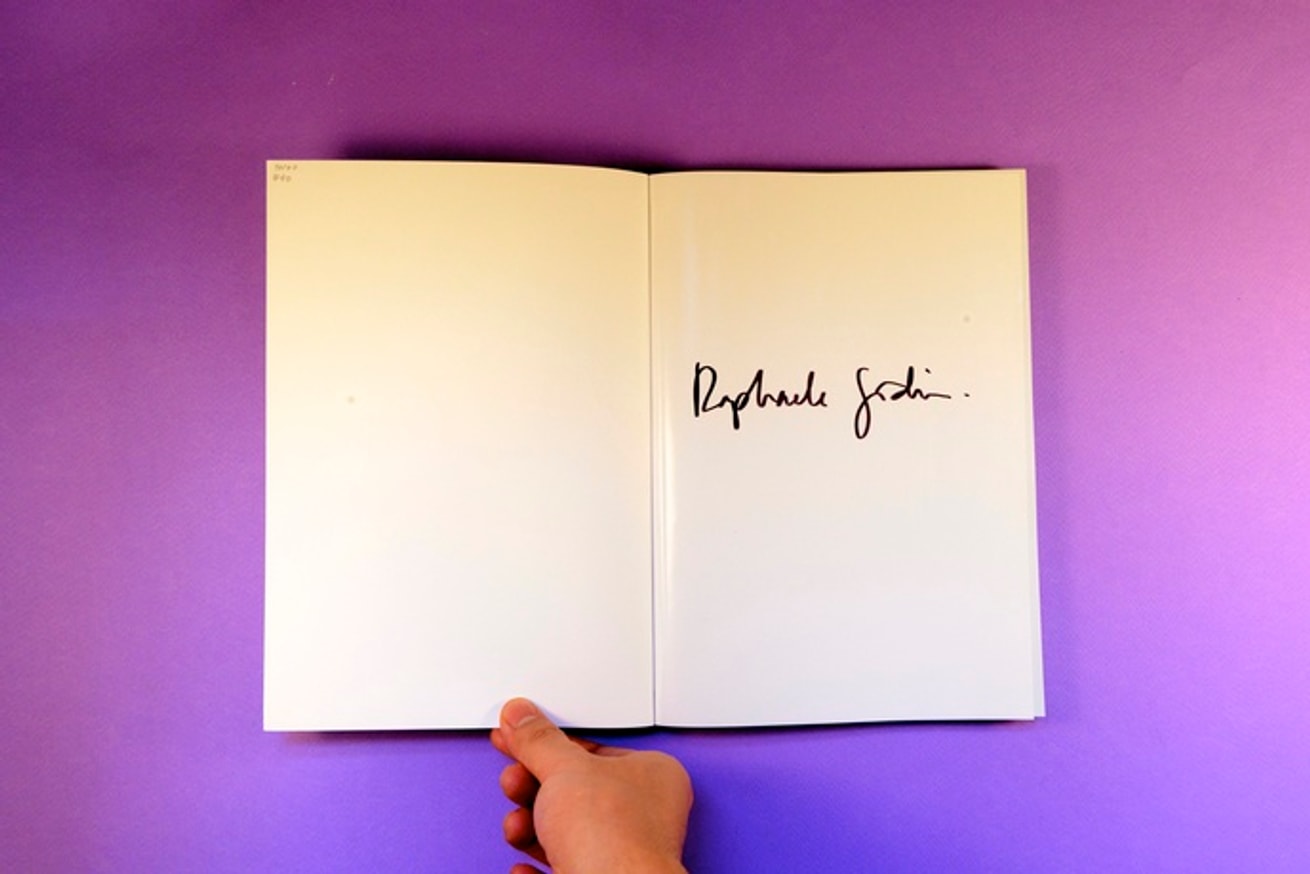 Raphaele Godin.